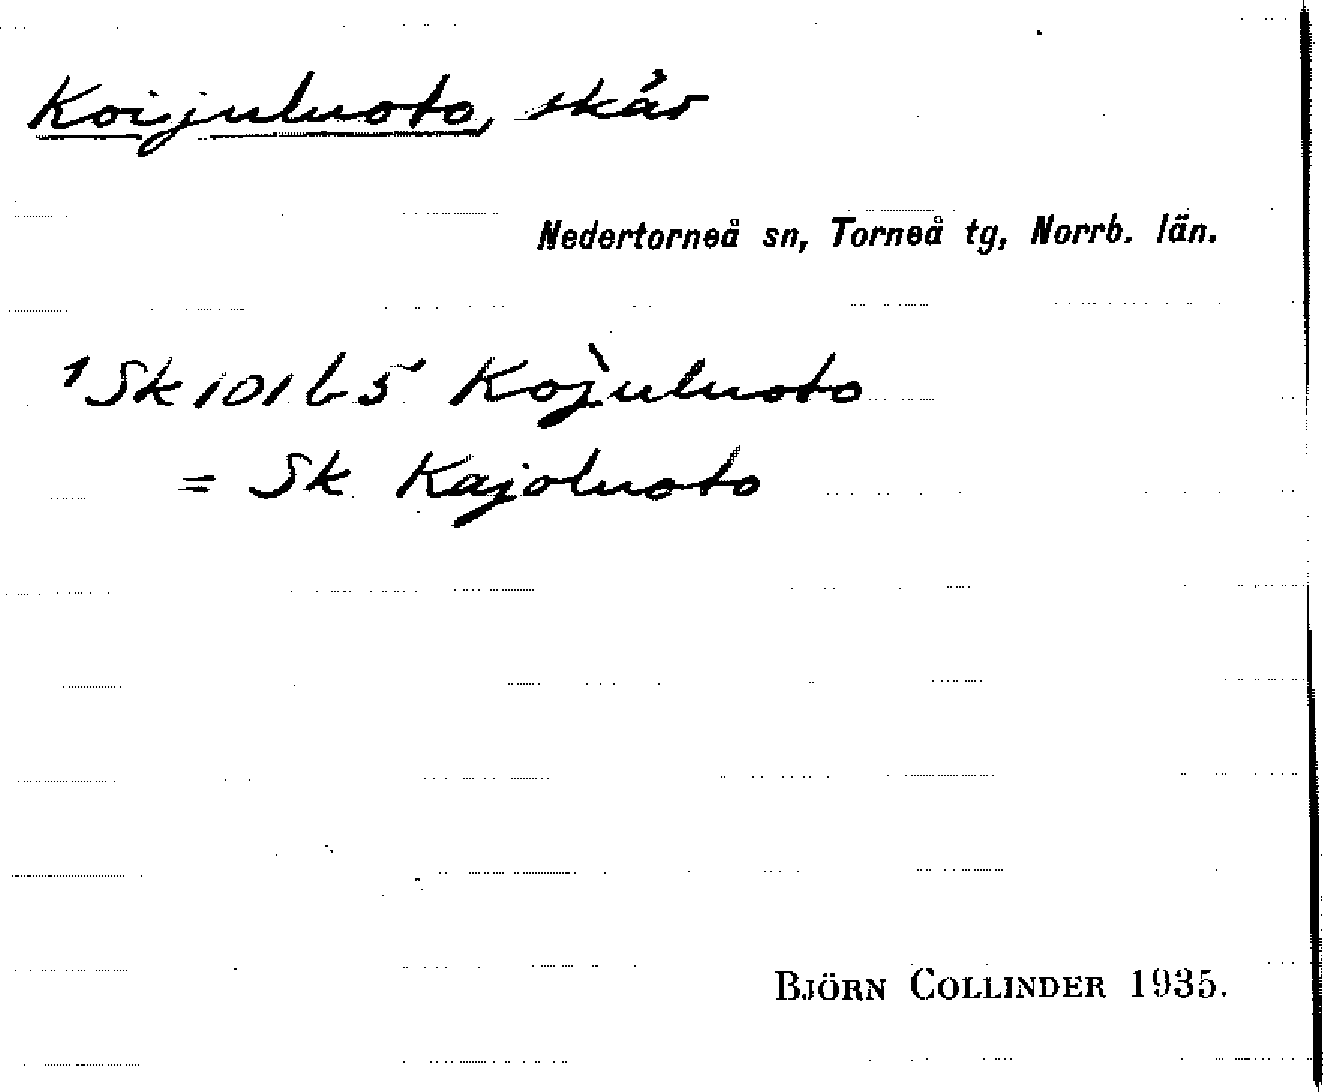 Koijuluoto, skär
Nedertorneå sn, Torneå tg, Norrb. län.
1 Sk 101 b 5 Kojuluoto
= Sk Kajoluoto
BJÖRN COLLINDER 1935.